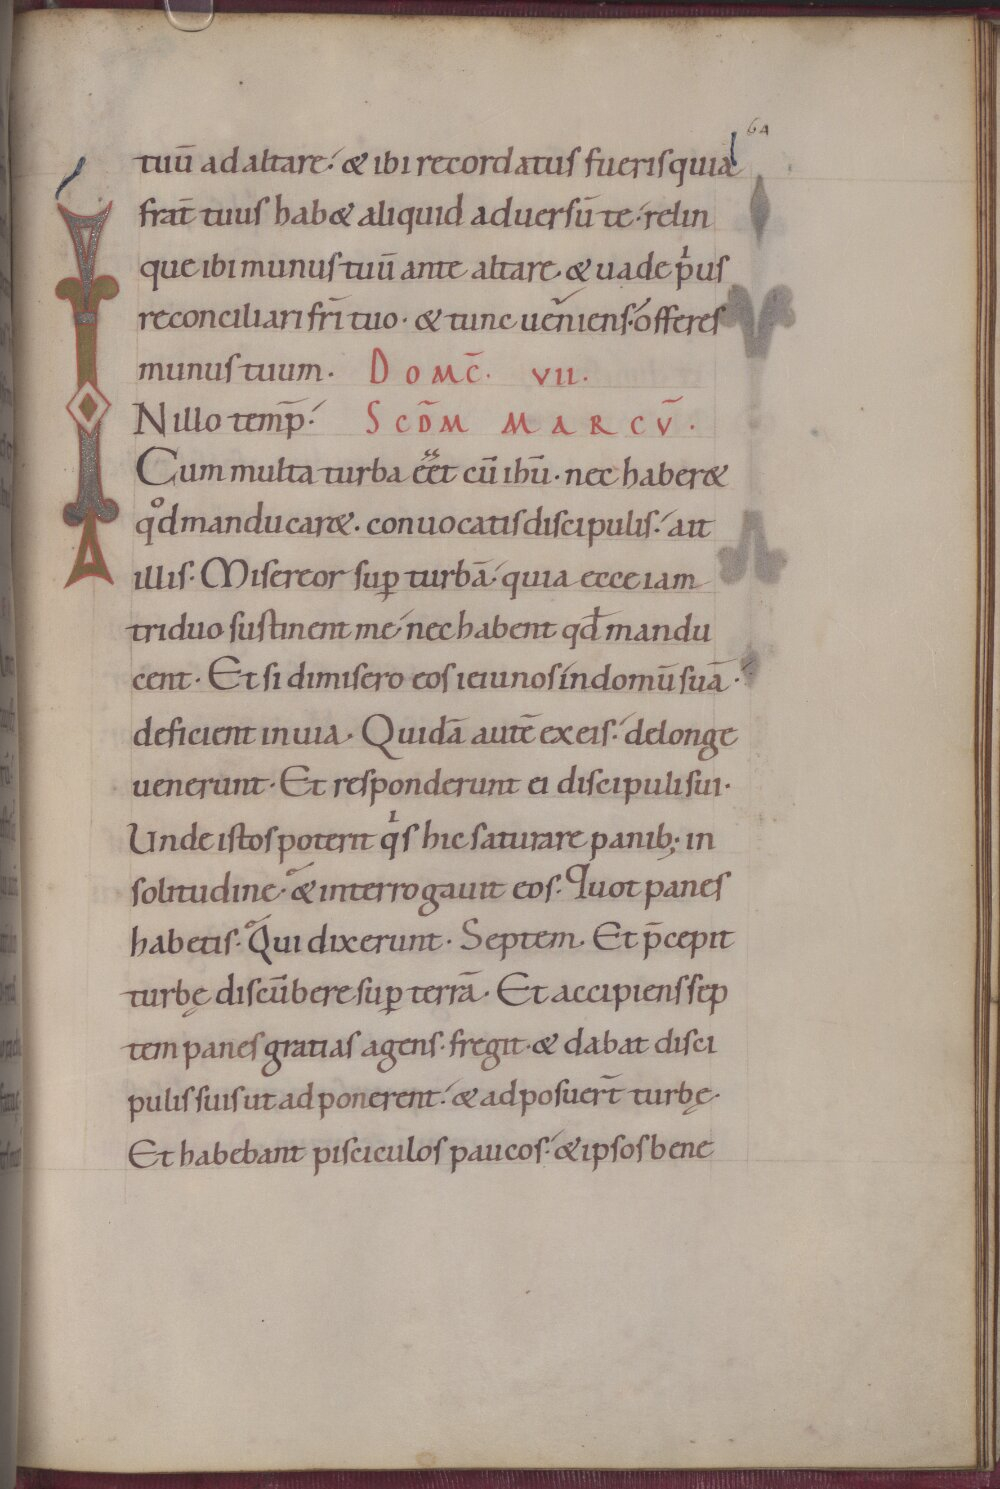 64
tuū ad altare· & ibi recordatus fueris quia
frat̄ tuus hab& aliquid aduersū te· relin
que ibi munus tuū ante altare· & uade pͥus
reconciliari fr̄i tuo· & tunc ueniens· offeres
munus tuum· DOMC̄· VII·
INillo temp̄· SCD̄M MARCV̄·
Cum multa turba eēt cū ih̄u· nec haber&
qͦd manducar&· conuocatis discipulis· ait
illis· Misereor suꝑ turbā· quia ecce iam
triduo sustinent me· nec habent qđ mandu
cent· Et si dimisero eos ieiunos in domū suā·
deficient in uia· Quidā autē ex eis· de longe
uenerunt· Et responderunt ei discipuli sui·
Unde istos poterit qͥs hic saturare panib;· in
solitudine· & interrogauit eos· Quot panes
habetis· Qui dixerunt· Septem· Et p̄cepit
turbę discūbere suꝑ terrā· Et accipiens sep
tem panes gratias agens· fregit· & dabat disci
pulis suis ut adponerent· & adposuer̄t turbę·
Et habebant pisciculos paucos· & ipsos bene